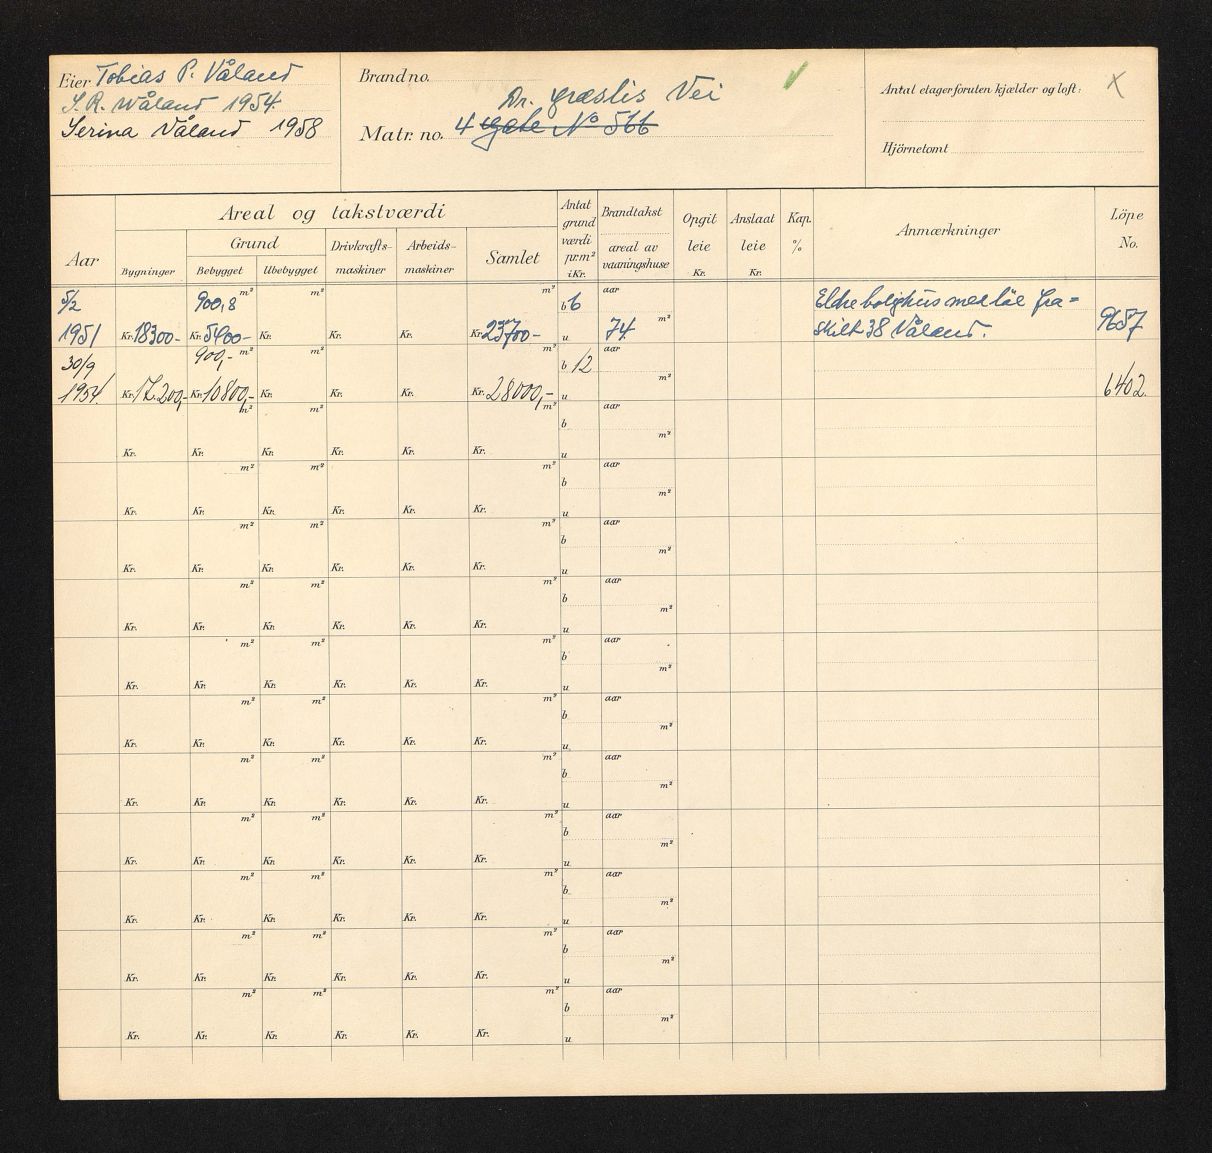 Eier Tobias P. Våland
S. R. Wåland 1954.
Serina Våland 1958
Brand no.
Dr. Græslis Vei
Matr. no. 4 gate No 566
Antal etager foruten kjælder og loft: X
Hjörnetomt
Aar
Areal og takstværdi
Bygninger
Grund
Bebygget
Ubebygget
Drivkrafts-
maskiner
Arbeids-
maskiner
Samlet
Antat
grund
værdi
pr. m²
i Kr.
Brandtakst
areal av
vaaningshuse
Opgit
leie
Kr.
Anslaat
leie
Kr.
Kap.
%
Anmærkninger
Löpe
No.
5/2 900,8 m² m² m² b 6 aar Eldre bolighus med löe fra=
1951 Kr. 18300- Kr. 5400- Kr. Kr. Kr. Kr. 23700- u 74 m² skilt 38 Våland. 9657
30/9 900,- m² m² m² b 12 aar
1954. Kr. 17.200,- Kr. 10800,- Kr. Kr. Kr. Kr. 28000,- u m² 6402.
m² m² m² b aar
Kr. Kr. Kr. Kr. Kr. Kr. u m²
m² m² m² b aar
Kr. Kr. Kr. Kr. Kr. Kr. u m²
m² m² m² b aar
Kr. Kr. Kr. Kr. Kr. Kr. u m²
m² m² m² b aar
Kr. Kr. Kr. Kr. Kr. Kr. u m²
m² m² m² b aar
Kr. Kr. Kr. Kr. Kr. Kr. u m²
m² m² m² b aar
Kr. Kr. Kr. Kr. Kr. Kr. u m²
m² m² m² b aar
Kr. Kr. Kr. Kr. Kr. Kr. u m²
m² m² m² b aar
Kr. Kr. Kr. Kr. Kr. Kr. u m²
m² m² m² b aar
Kr. Kr. Kr. Kr. Kr. Kr. u m²
m² m² m² b aar
Kr. Kr. Kr. Kr. Kr. Kr. u m²
m² m² m² b aar
Kr. Kr. Kr. Kr. Kr. Kr. u m²